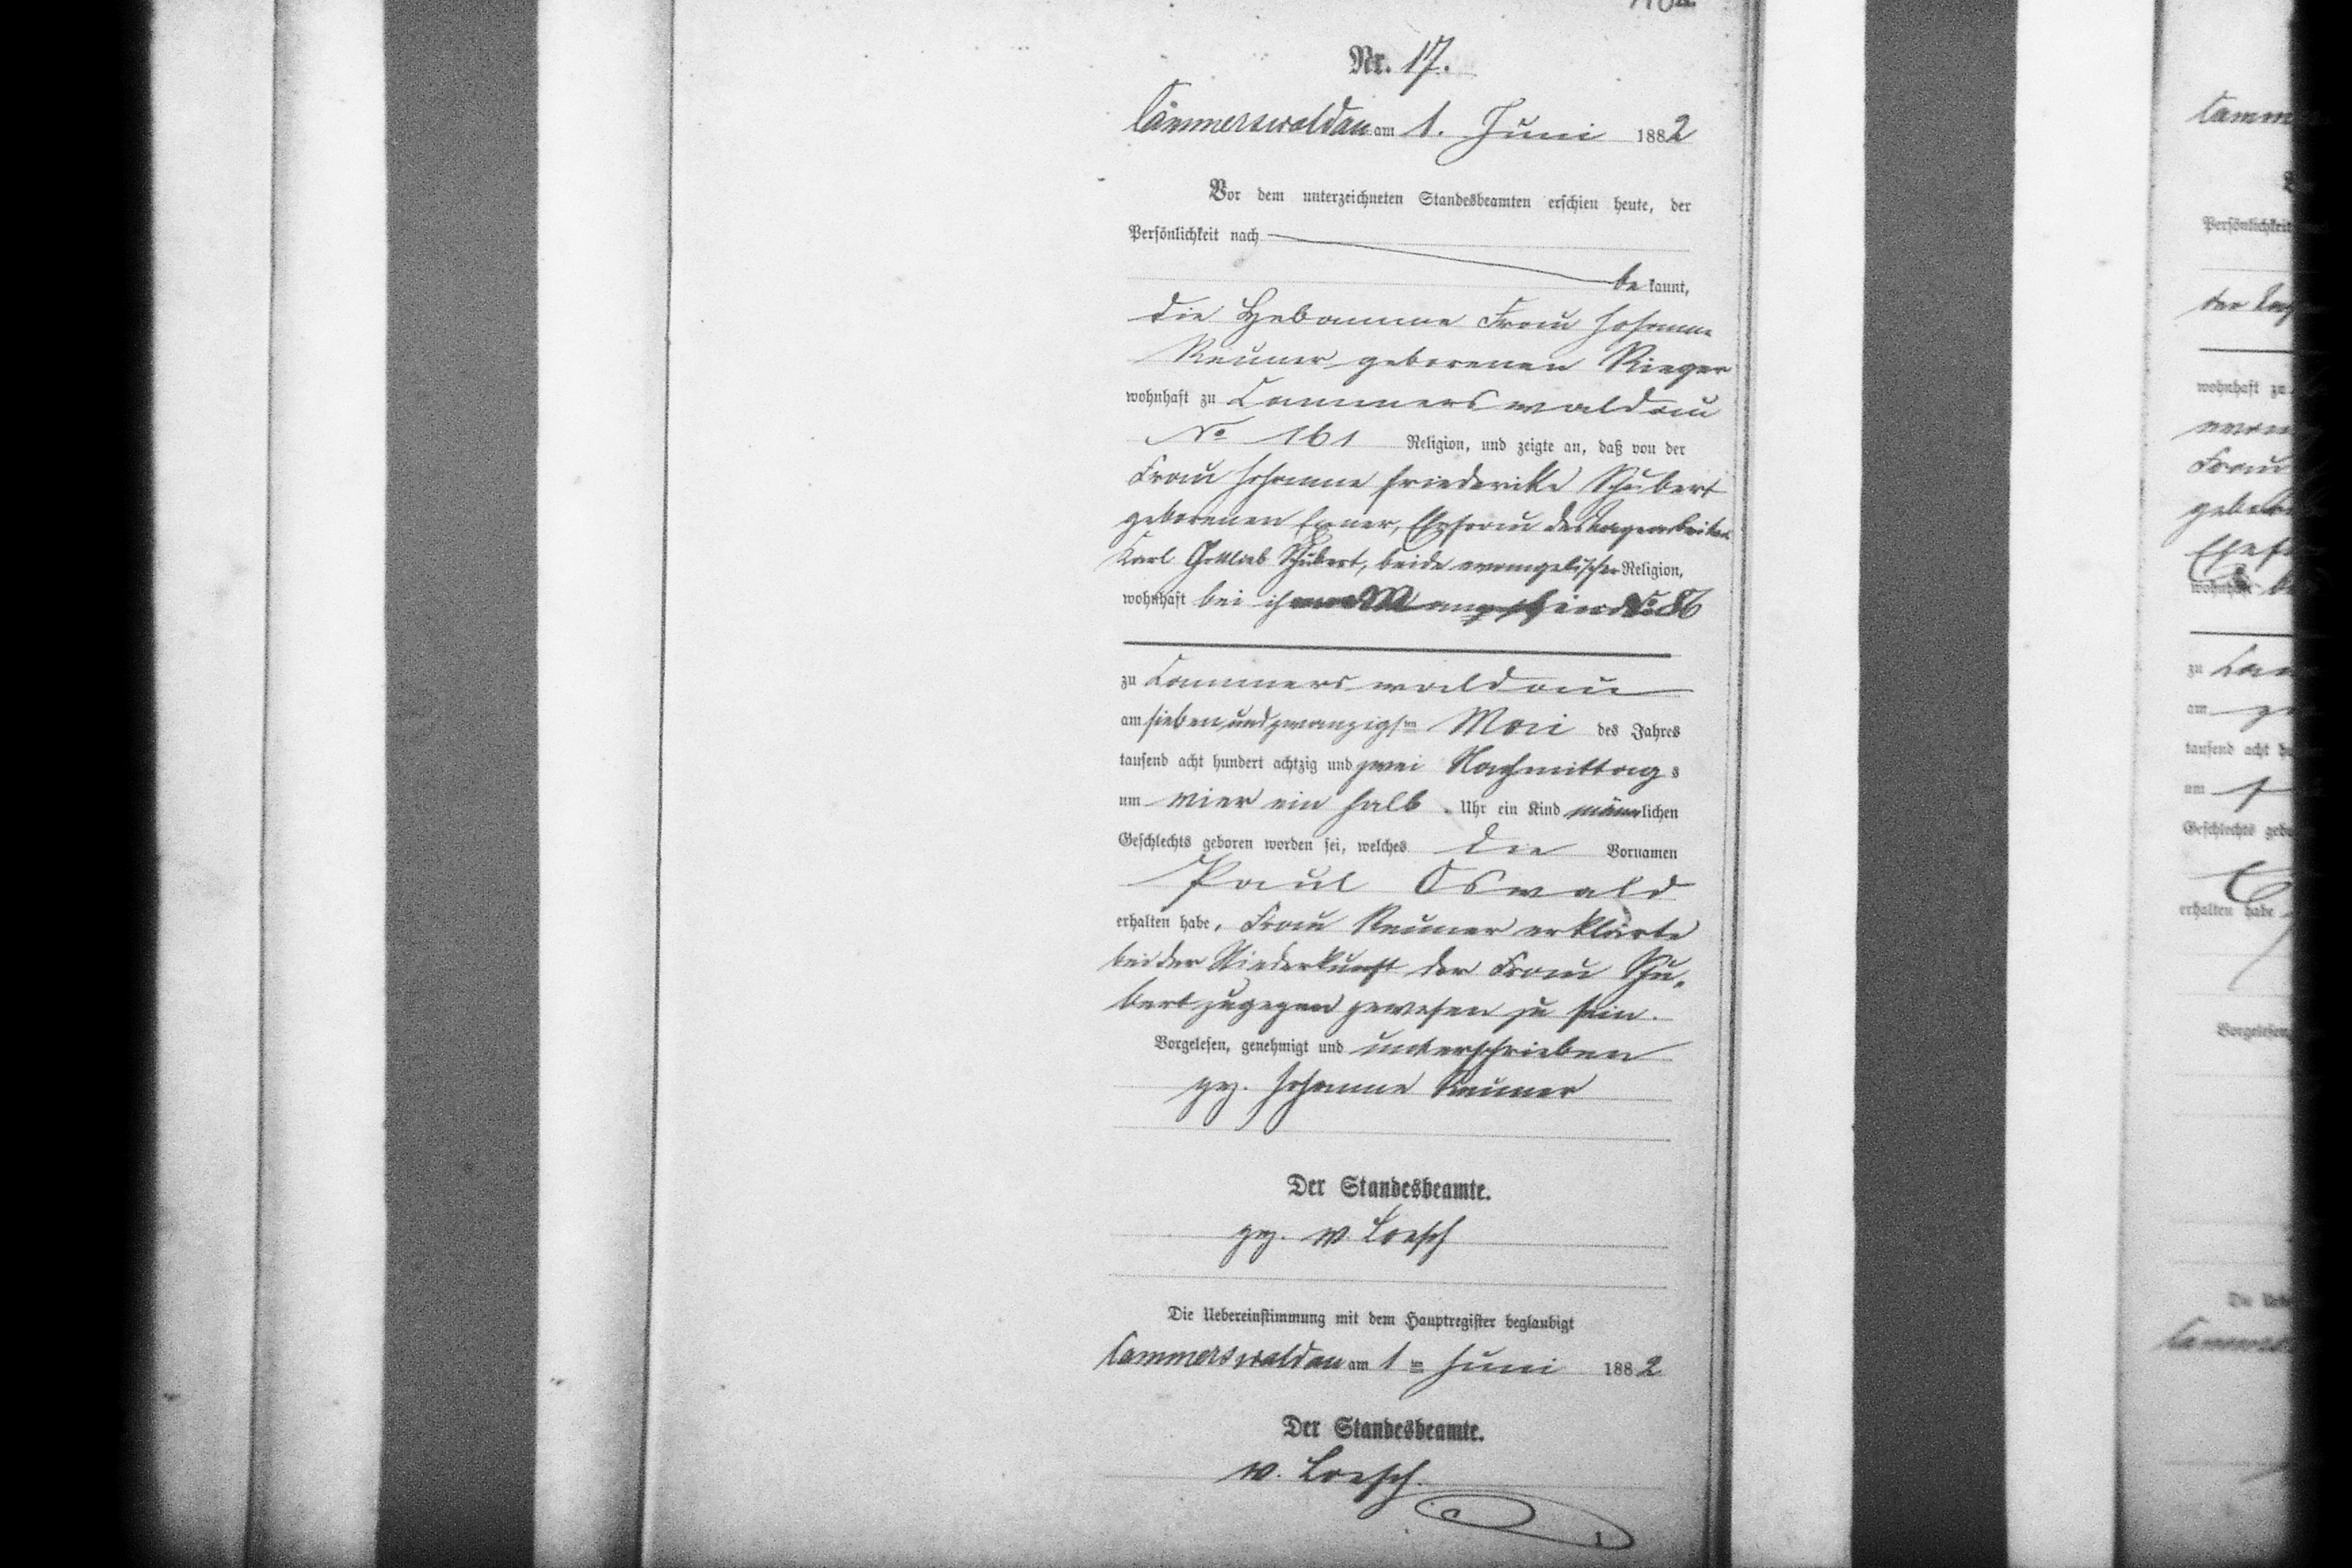 Nr. 17.
Cammerswaldau am 1. Juni 1882
Vor dem unterzeichneten Standesbeamten erschien heute, der
Persönlichkeit nach
bekannt,
die Hebamme Frau Johanne
Reuner geborenen Rieger
wohnhaft zu Cammerswaldau
No 161 Religion, und zeigte an, daß von der
Frau Johanne Friederike Schubert
geborenen Exner, Ehefrau des
Karl Gottlieb Schubert, beide evangelischer Religion,
wohnhaft bei ihrem No 86
zu Cammerswaldau
am sieben und zwanzigsten Mai des Jahres
tausend acht hundert achtzig und zwei Nachmittags
um vier ein halb Uhr ein Kind männlichen
Geschlechts geboren worden sei, welches die Vornamen
Paul Oswald
erhalten habe, Frau Reuner erklärte
bei der Niederkunft der Frau Schu-
bert zugegen gewesen zu sein.
Vorgelesen, genehmigt und unterschrieben
gez. Johanne Reuner
Der Standesbeamte.
gez. v. Loesch
Die Uebereinstimmung mit dem Hauptregister beglaubigt
Cammerswaldau am 1ten Juni 1882
Der Standesbeamte.
v. Loesch.
Camm
Persönlichkeit
wohnhaft zu
Frau
Ehef
wohnhaft
zu Cam
am
tausend acht
um
Geschlechts geb
erhalten habe
Vorgelesen,
Die Ueb
Cammers